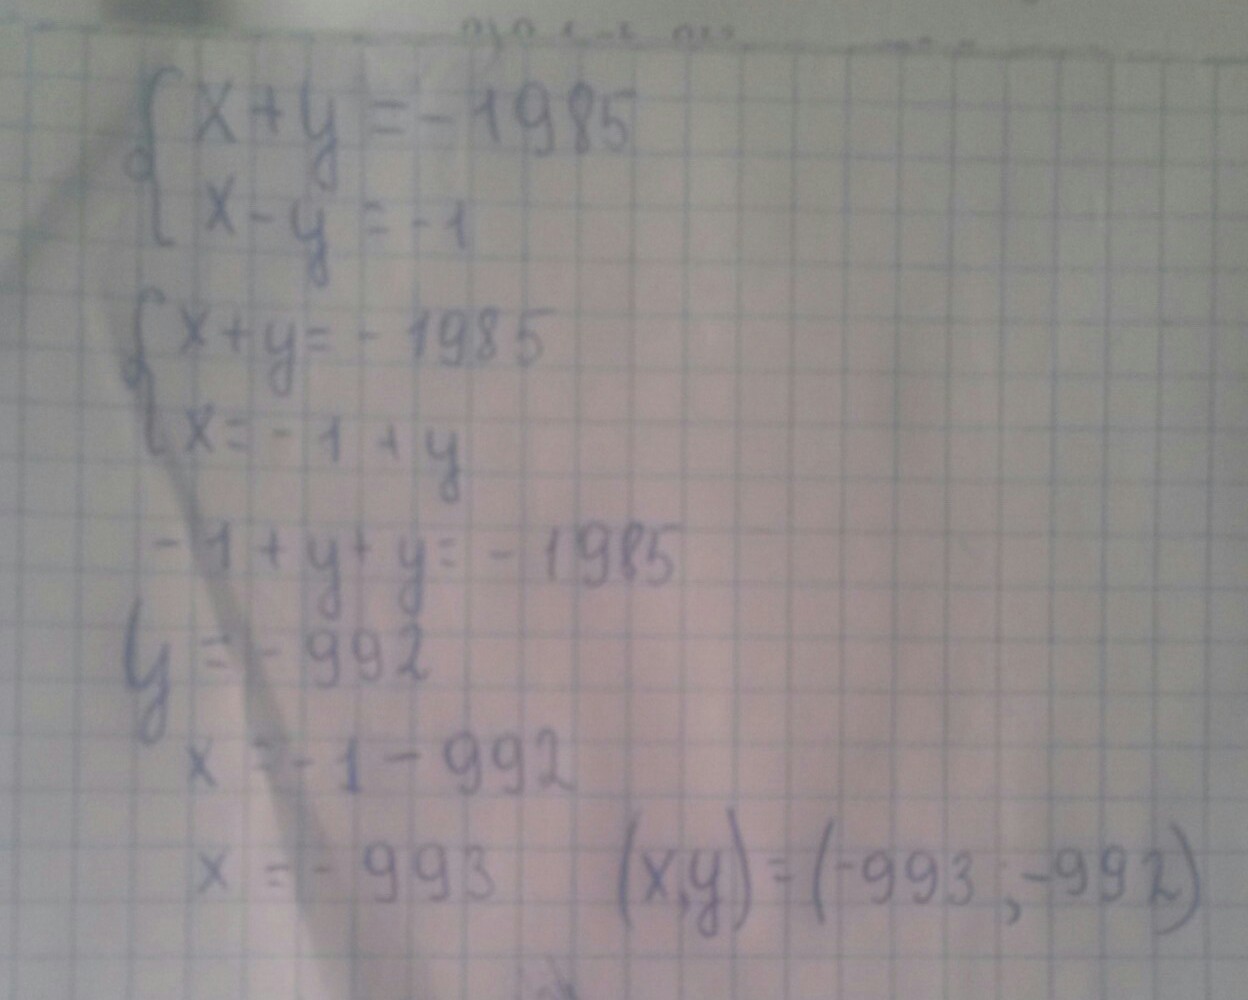 { x + y = -1985
x - y = -1
{ x + y = -1985
x = -1 + y
-1 + y + y = -1985
y = -992
x = -1 - 992
x = -993 (x,y) = (-993 ; -992)